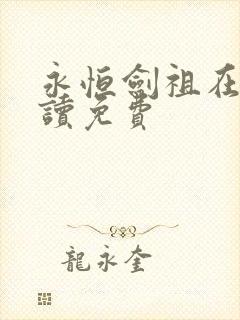 永恒劍祖在
讀免費
龍永奎